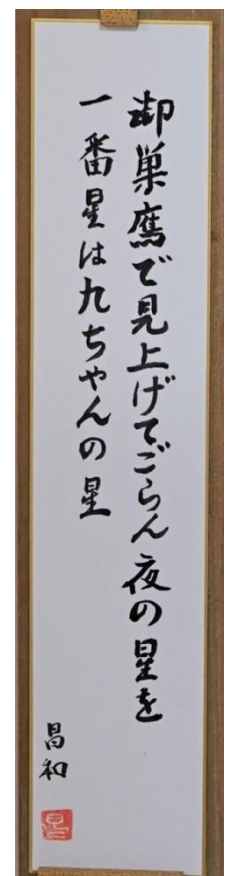 御巣鷹で見上げてごらん夜の星を
一番星は九ちゃんの星
昌和